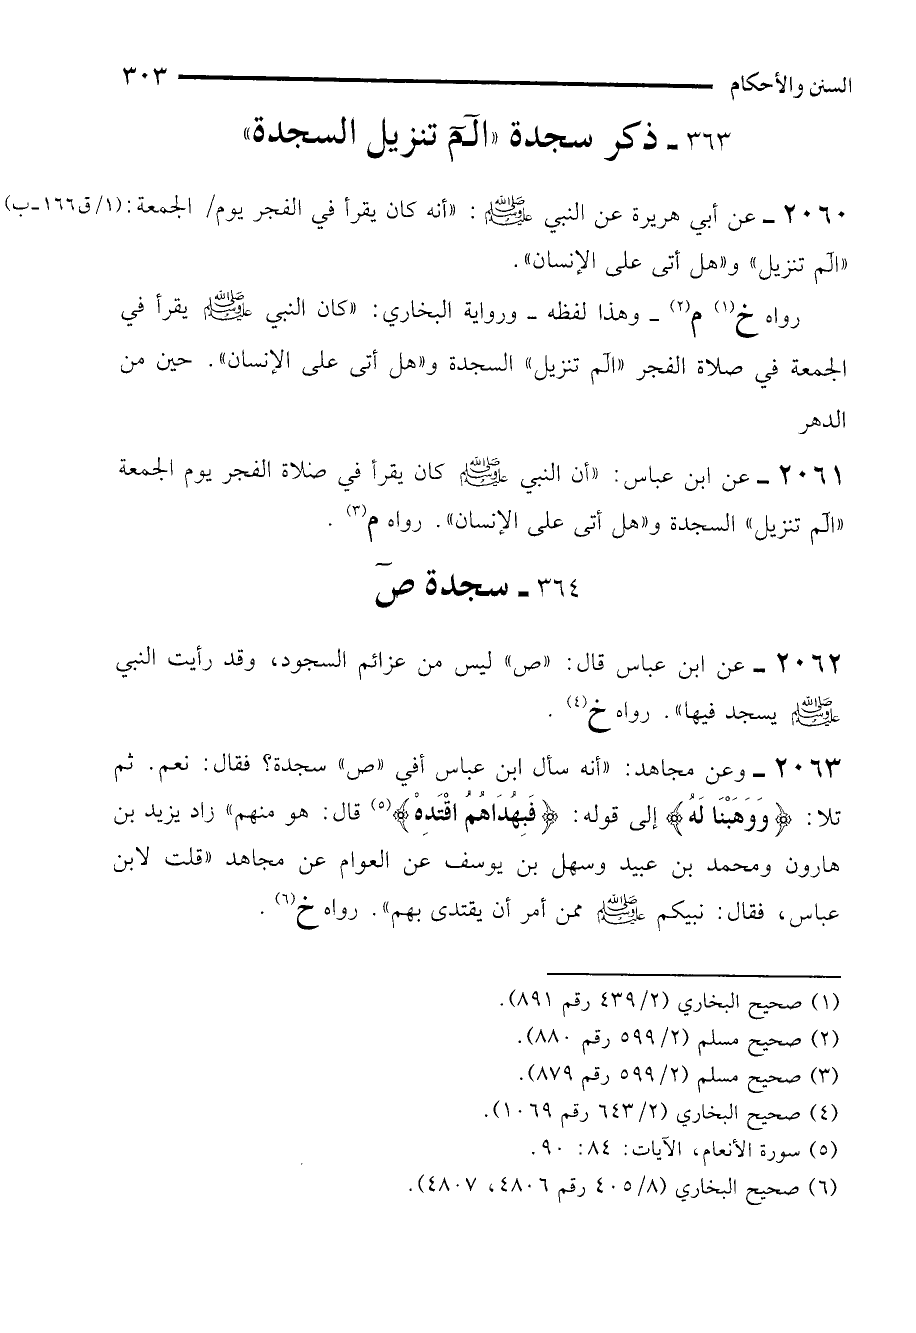 السنن والأحكام ٣٠٣
٣٦٣ ـ ذكر سجدة «الٓمٓ تنزيل السجدة»
٢٠٦٠ ـ عن أبي هريرة عن النبي ﷺ : «أنه كان يقرأ في الفجر يوم/ الجمعة: (١/ق١٦٦-ب)
«الٓم تنزيل» و«هل أتى على الإنسان».
رواه خ(١) م(٢) ـ وهذا لفظه ـ ورواية البخاري: «كان النبي ﷺ يقرأ في
الجمعة في صلاة الفجر «الٓم تنزيل» السجدة و«هل أتى على الإنسان». حين من
الدهر
٢٠٦١ ـ عن ابن عباس: «أن النبي ﷺ كان يقرأ في صلاة الفجر يوم الجمعة
«الٓم تنزيل» السجدة و«هل أتى على الإنسان». رواه م(٣) .
٣٦٤ ـ سجدة صٓ
٢٠٦٢ ـ عن ابن عباس قال: «ص» ليس من عزائم السجود، وقد رأيت النبي
ﷺ يسجد فيها». رواه خ(٤) .
٢٠٦٣ ـ وعن مجاهد: «أنه سأل ابن عباس أفي «ص» سجدة؟ فقال: نعم. ثم
تلا: ﴿وَوَهَبْنَا لَهُ﴾ إلى قوله: ﴿فَبِهُدَاهُمُ اقْتَدِهْ﴾(٥) قال: هو منهم» زاد يزيد بن
هارون ومحمد بن عبيد وسهل بن يوسف عن العوام عن مجاهد «قلت لابن
عباس، فقال: نبيكم ﷺ ممن أمر أن يقتدى بهم». رواه خ(٦) .
(١) صحيح البخاري (٤٣٩/٢ رقم ٨٩١).
(٢) صحيح مسلم (٥٩٩/٢ رقم ٨٨٠).
(٣) صحيح مسلم (٥٩٩/٢ رقم ٨٧٩).
(٤) صحيح البخاري (٦٤٣/٢ رقم ١٠٦٩).
(٥) سورة الأنعام، الآيات: ٨٤: ٩٠.
(٦) صحيح البخاري (٤٠٥/٨ رقم ٤٨٠٦، ٤٨٠٧).